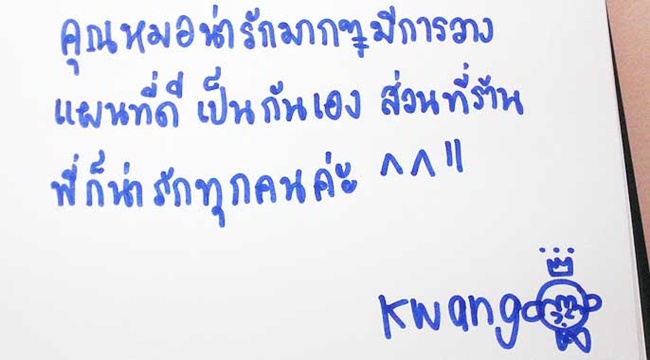 คุณหมอน่ารักมากๆมีการวาง
แผนที่ดี เป็นกันเอง ส่วนที่ร้าน
พี่ก็น่ารักทุกคนค่ะ ^^"
Kwang